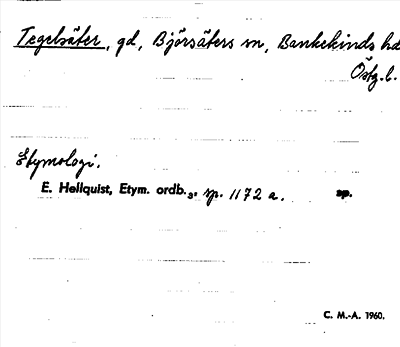 Tegelsäter, gd, Björsäters sn, Bankekinds hd
Östg. l.
Etymologi.
E. Hellquist, Etym. ordb.₃, sp. 1172 a. sp.
C. M.-A. 1960.